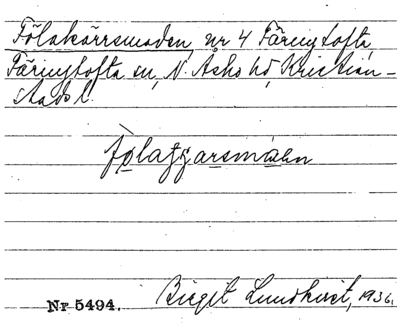 Fölakärrsmaden, nr 4 Färingtofta,
Färingtofta sn, N. Åsbo hd, Kristian-
stads l.
følatjarsmáɛn
Nr 5494.
Birgit Lundkvist, 1936.